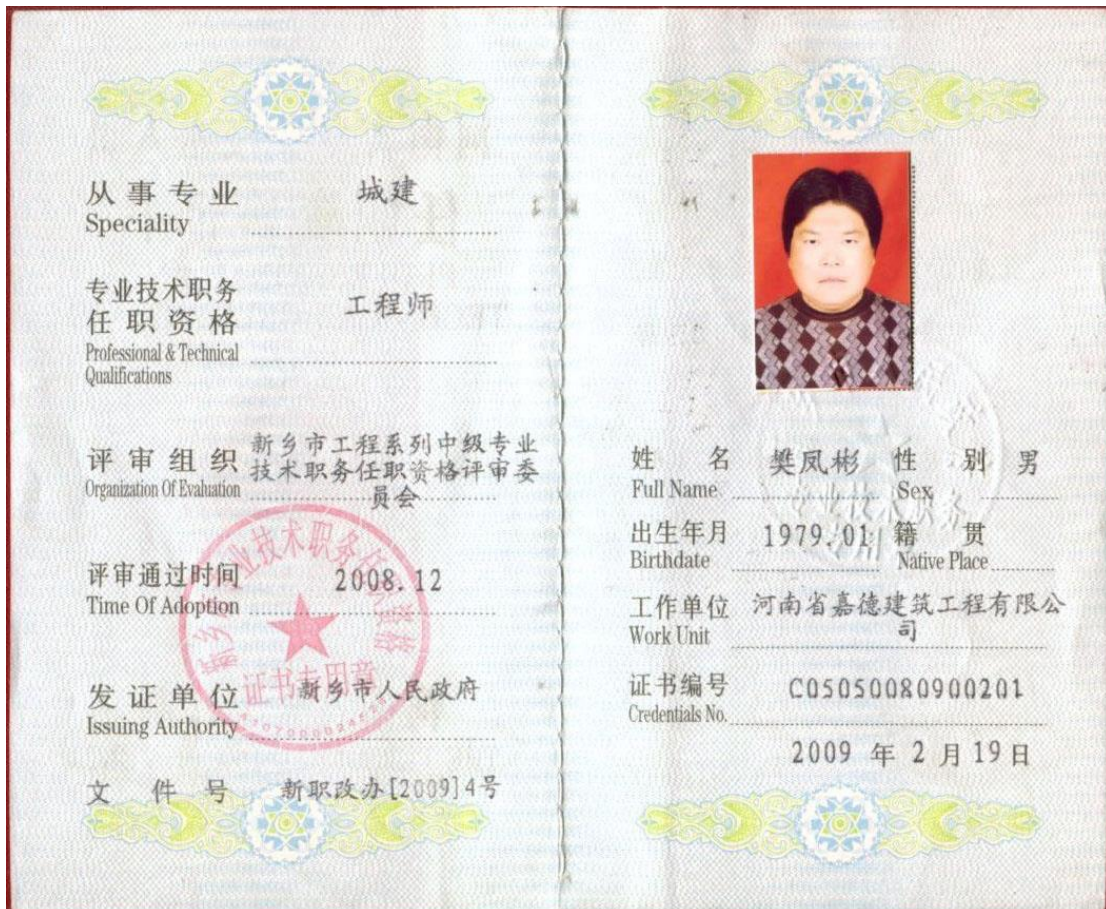 从事专业 城建
Speciality
专业技术职务
任职资格 工程师
Professional & Technical
Qualifications
评审组织 新乡市工程系列中级专业
技术职务任职资格评审委
员会
Organization Of Evaluation
评审通过时间 2008.12
Time Of Adoption
发证单位 新乡市人民政府
Issuing Authority
文件号 新职改办[2009]4号
证书专用章
姓名 樊凤彬 性别 男
Full Name Sex
出生年月 1979.01 籍贯
Birthdate Native Place
工作单位 河南省嘉德建筑工程有限公
司
Work Unit
证书编号 C05050080900201
Credentials No.
2009 年 2 月 19 日